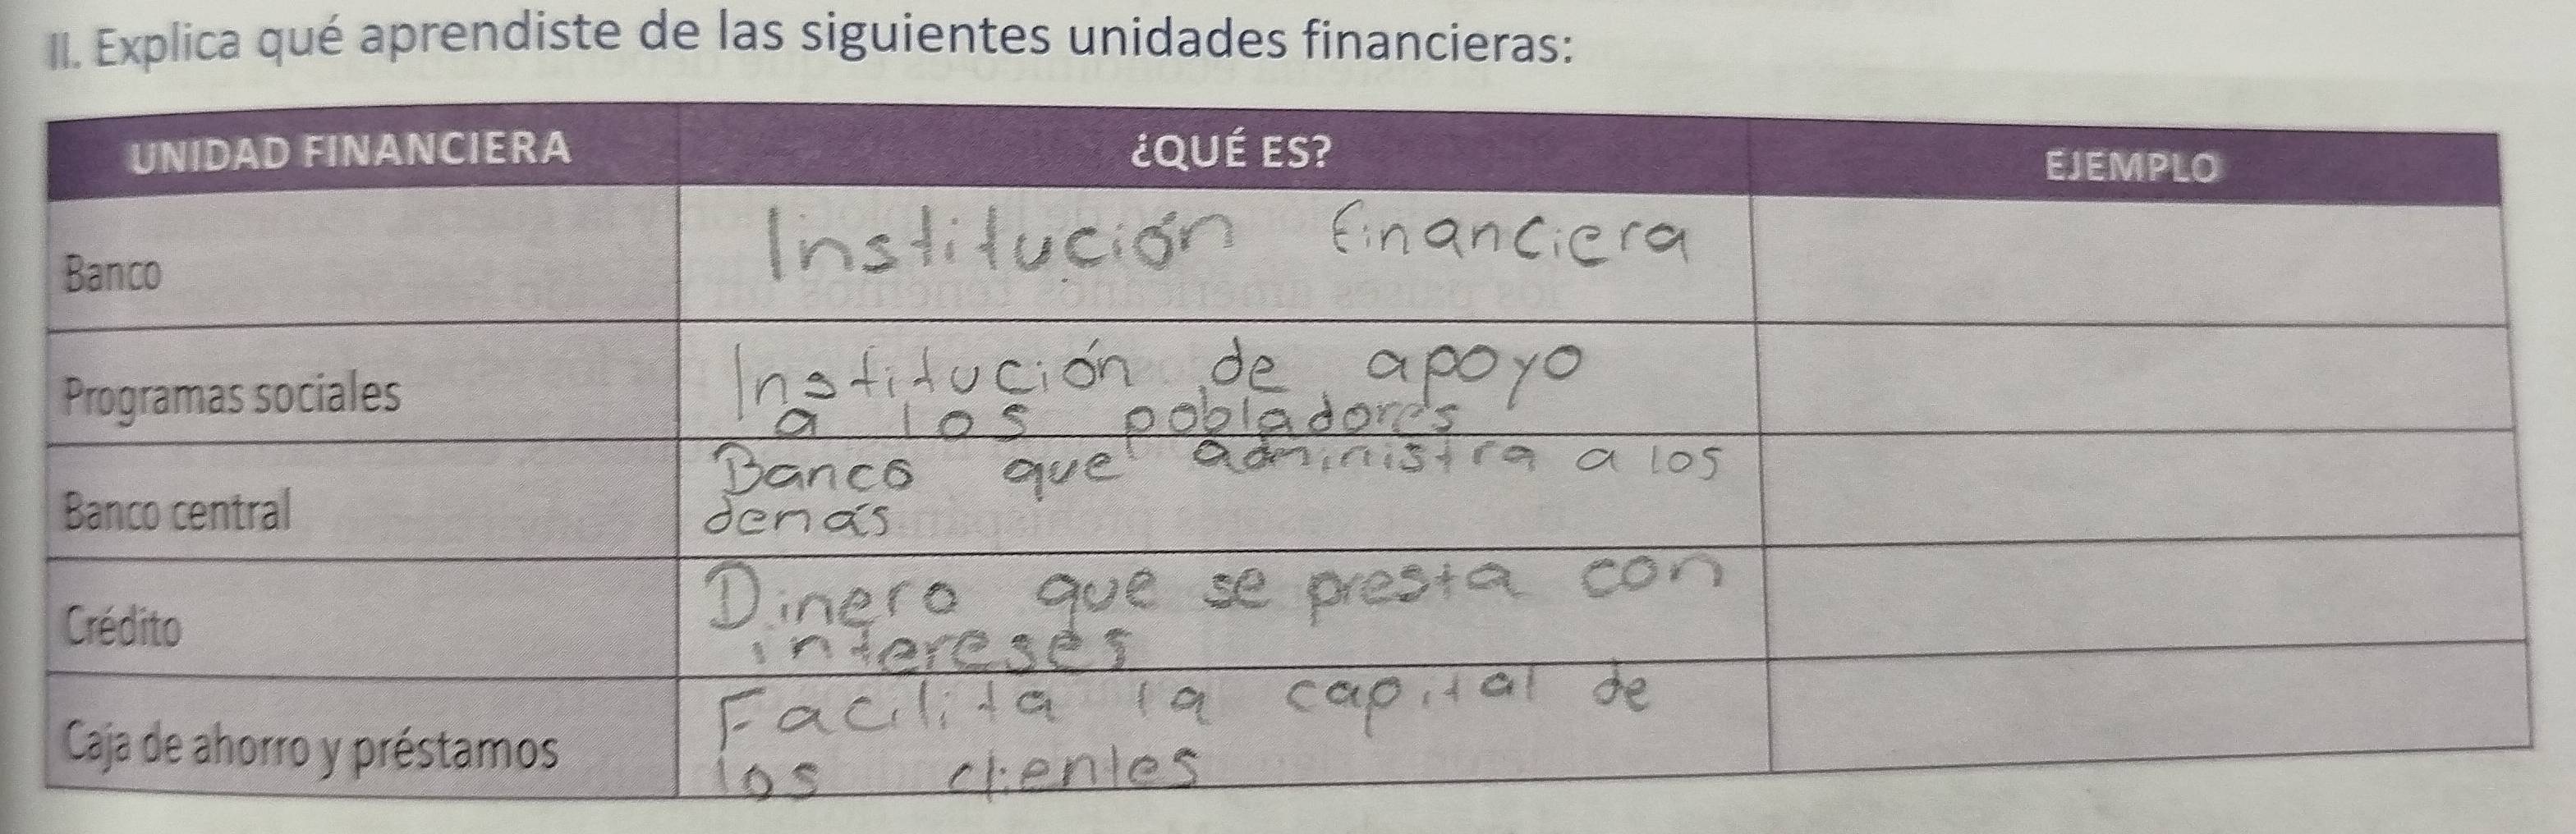 II. Explica qué aprendiste de las siguientes unidades financieras:
UNIDAD FINANCIERA ¿QUÉ ES? EJEMPLO
Banco
Institución financiera
Programas sociales
Institución de apoyo
a los pobladores
Banco central
Banco que administra a los
demás
Crédito
Dinero que se presta con
intereses
Caja de ahorro y préstamos
Facilita la capital de
los clientes